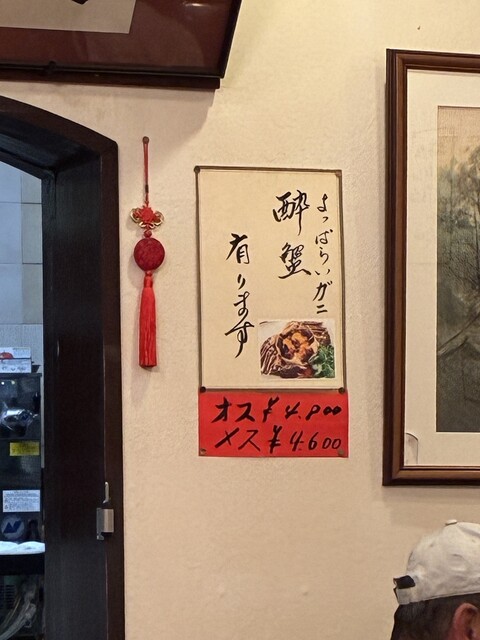 よっぱらいガニ
酔蟹
有ります
オス¥4.800
メス¥4.600